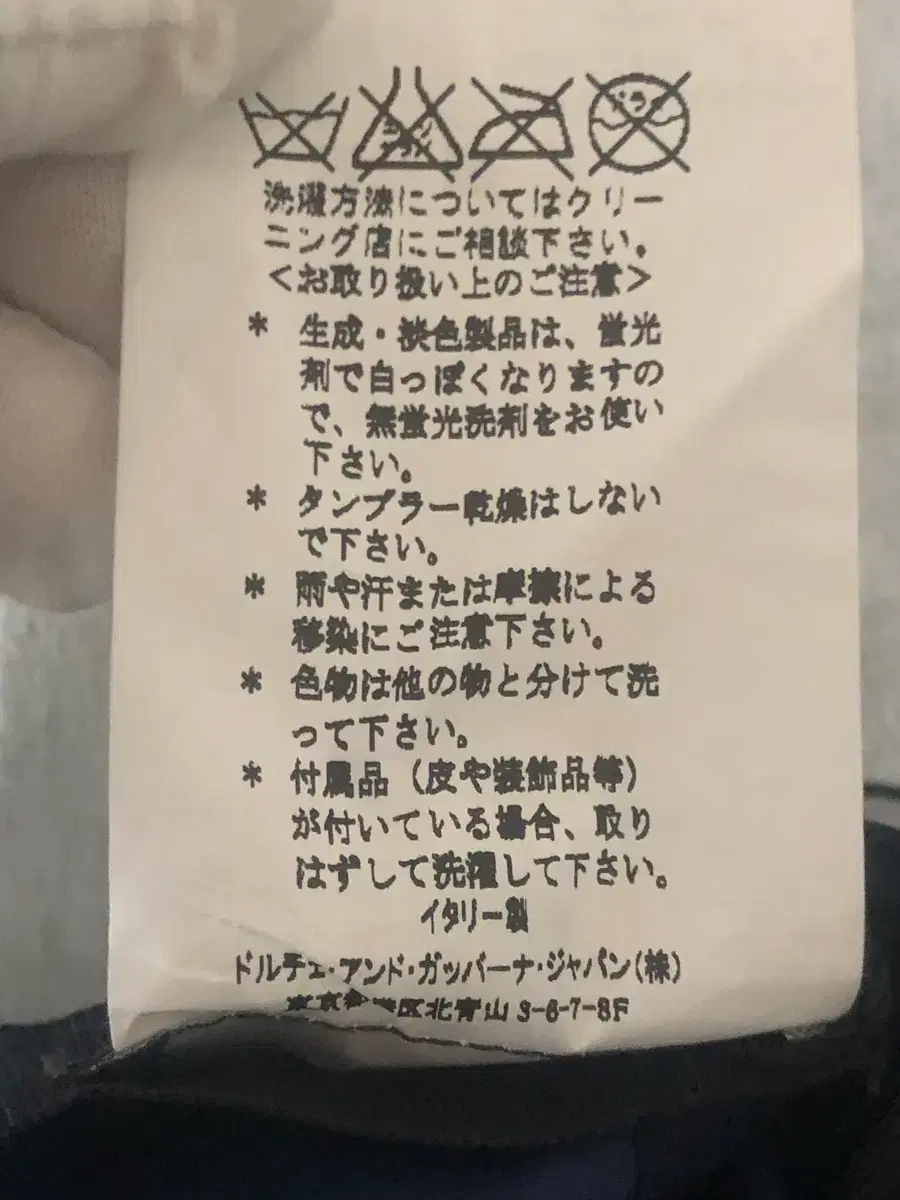 洗濯方法についてはクリー
ニング店にご相談下さい。
<お取り扱い上のご注意>
* 生成・淡色製品は、蛍光
剤で白っぽくなりますの
で、無蛍光洗剤をお使い
下さい。
* タンブラー乾燥はしない
で下さい。
* 雨や汗または摩擦による
移染にご注意下さい。
* 色物は他の物と分けて洗
って下さい。
* 付属品(皮や装飾品等)
が付いている場合、取り
はずして洗濯して下さい。
イタリー製
ドルチェ・アンド・ガッバーナ・ジャパン(株)
区北青山3-6-7-8F